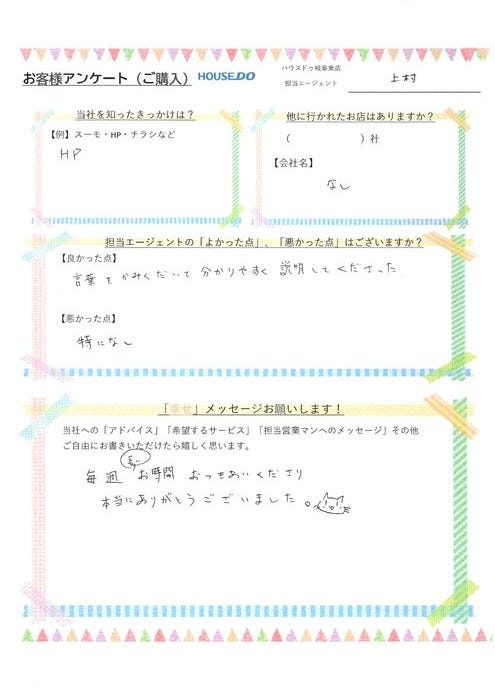 お客様アンケート（ご購入） HOUSEDO
ハウスドゥ岐阜東店
担当エージェント 上村
当社を知ったきっかけは？
【例】スーモ・HP・チラシなど
HP
他に行かれたお店はありますか？
（ ）社
【会社名】
なし
担当エージェントの「よかった点」、「悪かった点」はございますか？
【良かった点】
言葉をかみくだいて分かりやすく説明してくださった
【悪かった点】
特になし
「幸せ」メッセージお願いします！
当社への「アドバイス」「希望するサービス」「担当営業マンへのメッセージ」その他
ご自由にお書きいただけたら嬉しく思います。
長い
毎週 お時間 おつきあいくださり
本当にありがとうございました。